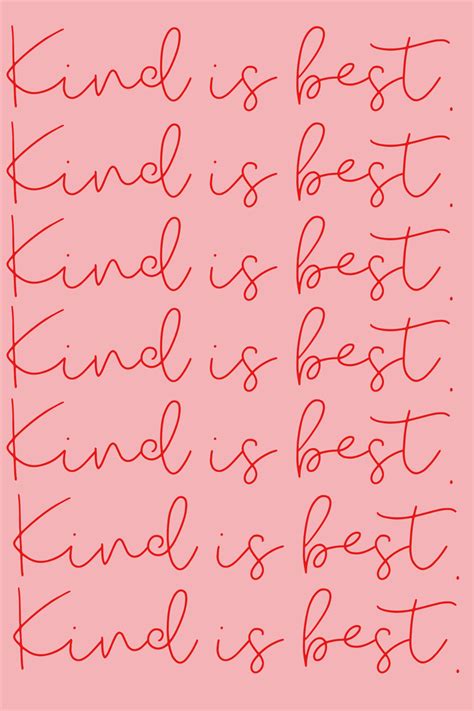 Kind is best.
Kind is best.
Kind is best.
Kind is best.
Kind is best.
Kind is best.
Kind is best.